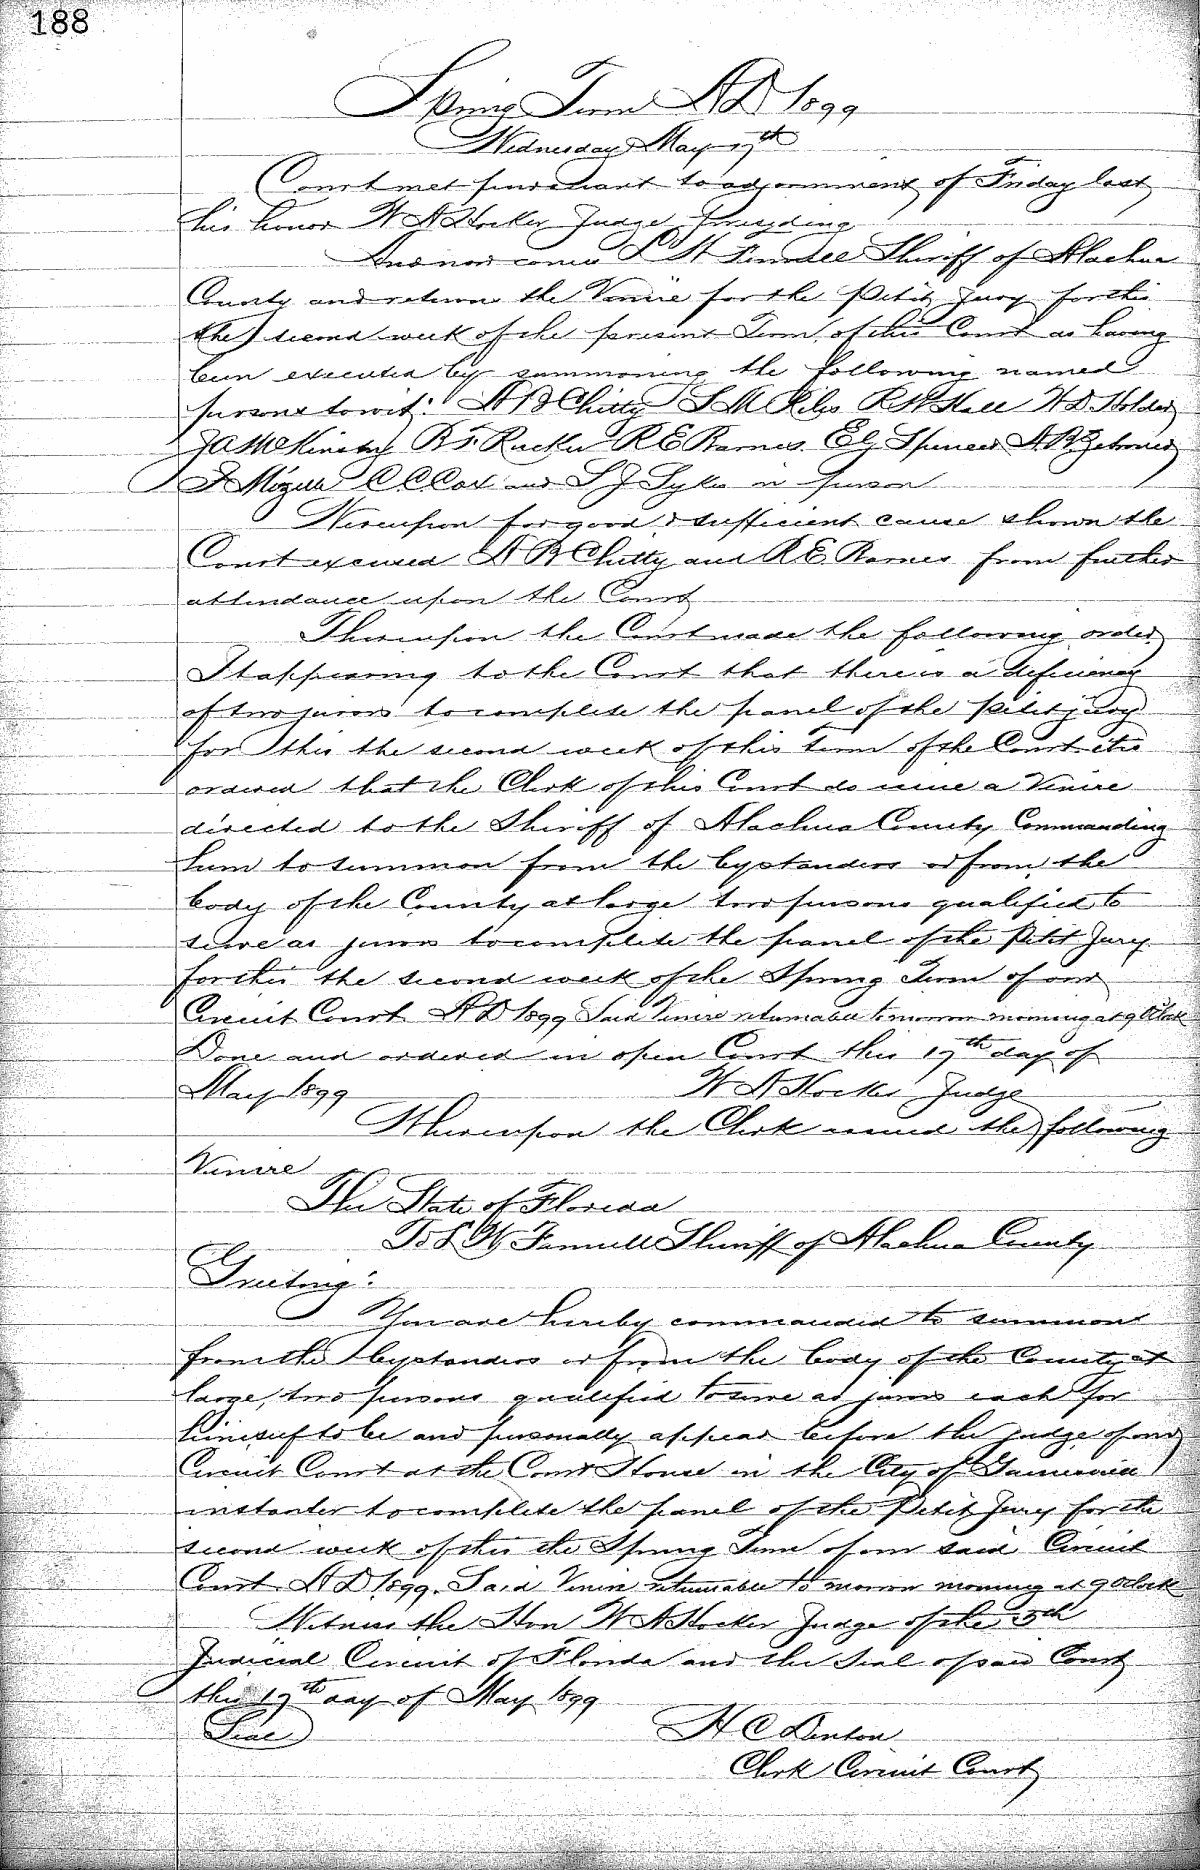 188
Spring Term A D 1899
Wednesday May 17th
Court met pursuant to adjournment of Friday last
his honor W A Hocker Judge presyding
And now comes L W Fennell Sheriff of Alachua
County and return the Venire for the Petit Jury for this
the second week of the present Term of this Court as having
been executed by summoning the following named
persons towit: A B Chitty S M R H Hall W D Holder
J A McKinstry B F Rucker R E Barnes Spencer A R
F C C Cox and S J Sykes in person
Hereupon for good & sufficient cause shown the
Court excused A B Chitty and R E Barnes from further
attendance upon the Court
Thereupon the Court made the following order
It appearing to the Court that there is a deficiency
of two jurors to complete the panel of the Petit jury
for this the second week of this Term of the Court it is
ordered that the Clerk of this Court do issue a Venire
directed to the Sheriff of Alachua County Commanding
him to summon from the bystanders or from the
body of the County at large two persons qualified to
serve as jurors to complete the panel of the Petit Jury
for this the second week of the Spring Term of our
Circuit Court A D 1899 Said Venire returnable tomorrow morning at 9 Oclock
Done and ordered in open Court this 17th day of
May 1899 W A Hocker Judge
Whereupon the Clerk issued the following
Venire
The State of Florida
To L W Fennell Sheriff of Alachua County
Greeting:
You are hereby commanded to summon
from the bystanders or from the body of the County at
large, two persons qualified to serve as jurors each for
himself to be and personally appear before the judge of our
Circuit Court at the Court House in the City of Gainesville
instanter to complete the panel of the Petit Jury for the
second week of this the Spring Term of our said Circuit
Court A D 1899. Said Venire returnable to morrow morning at 9 Oclock
Witness the Hon W A Hocker Judge of the 5th
Judicial Circuit of Florida and the Seal of said Court
this 17th day of May 1899
Seal H C Denton
Clerk Circuit Court